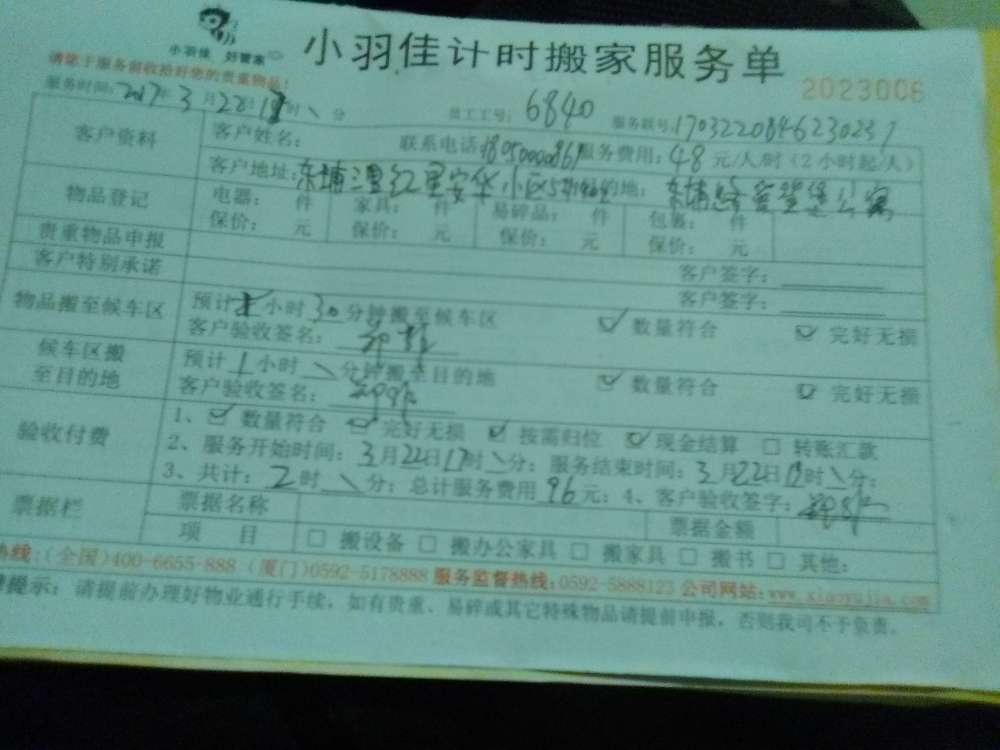 小羽佳 好管家
小羽佳计时搬家服务单
请您于服务前收拾好您的贵重物品!
2023006
服务时间: 2017年3月22日 时 \ 分 员工工号: 6840 服务联号: 170322084623023
客户资料 客户姓名: 联系电话: 服务费用: 48元/人/时 (2小时起/人)
客户地址: 东埔 红星安华小区 目的地: 东埔 公寓
物品登记 电器: 件 家具: 件 易碎品: 件 包裹: 件
保价: 元 保价: 元 保价: 元 保价: 元
贵重物品申报 客户签字:
客户特别承诺 客户签字:
物品搬至候车区 预计 小时30分钟搬至候车区 ☑ 数量符合 ☑ 完好无损
客户验收签名:
候车区搬至目的地 预计1小时 \ 分钟搬至目的地 ☑ 数量符合 ☑ 完好无损
客户验收签名:
验收付费 1、☑ 数量符合 ☑ 完好无损 ☑ 按需归位 ☑ 现金结算 □ 转账汇款
2、服务开始时间: 3月22日17时 \ 分; 服务结束时间: 3月22日19时 \ 分;
3、共计: 2时 \ 分; 总计服务费用96元; 4、客户验收签字:
票据栏 票据名称 票据金额
项 目 □ 搬设备 □ 搬办公家具 □ 搬家具 □ 搬书 □ 其他:
热线: (全国)400-6655-888 (厦门)0592-5178888 服务监督热线: 0592-5888123 公司网站: www.xiaoyujia.com
提示: 请提前办理好物业通行手续, 如有贵重、易碎或其它特殊物品请提前申报, 否则我司不予负责。